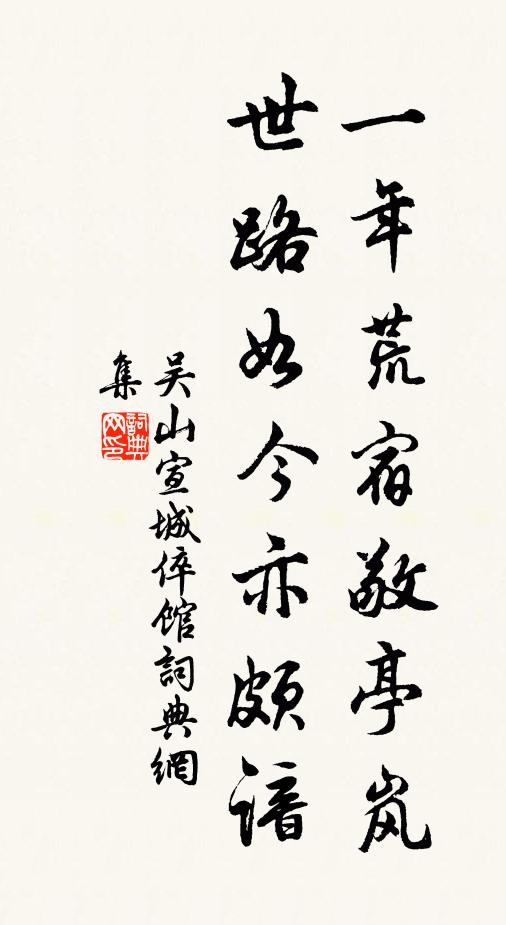 一年荒宿敬亭岚
世路如今亦颇谙
吴山宣城倅馆词典網
集
詞典网印